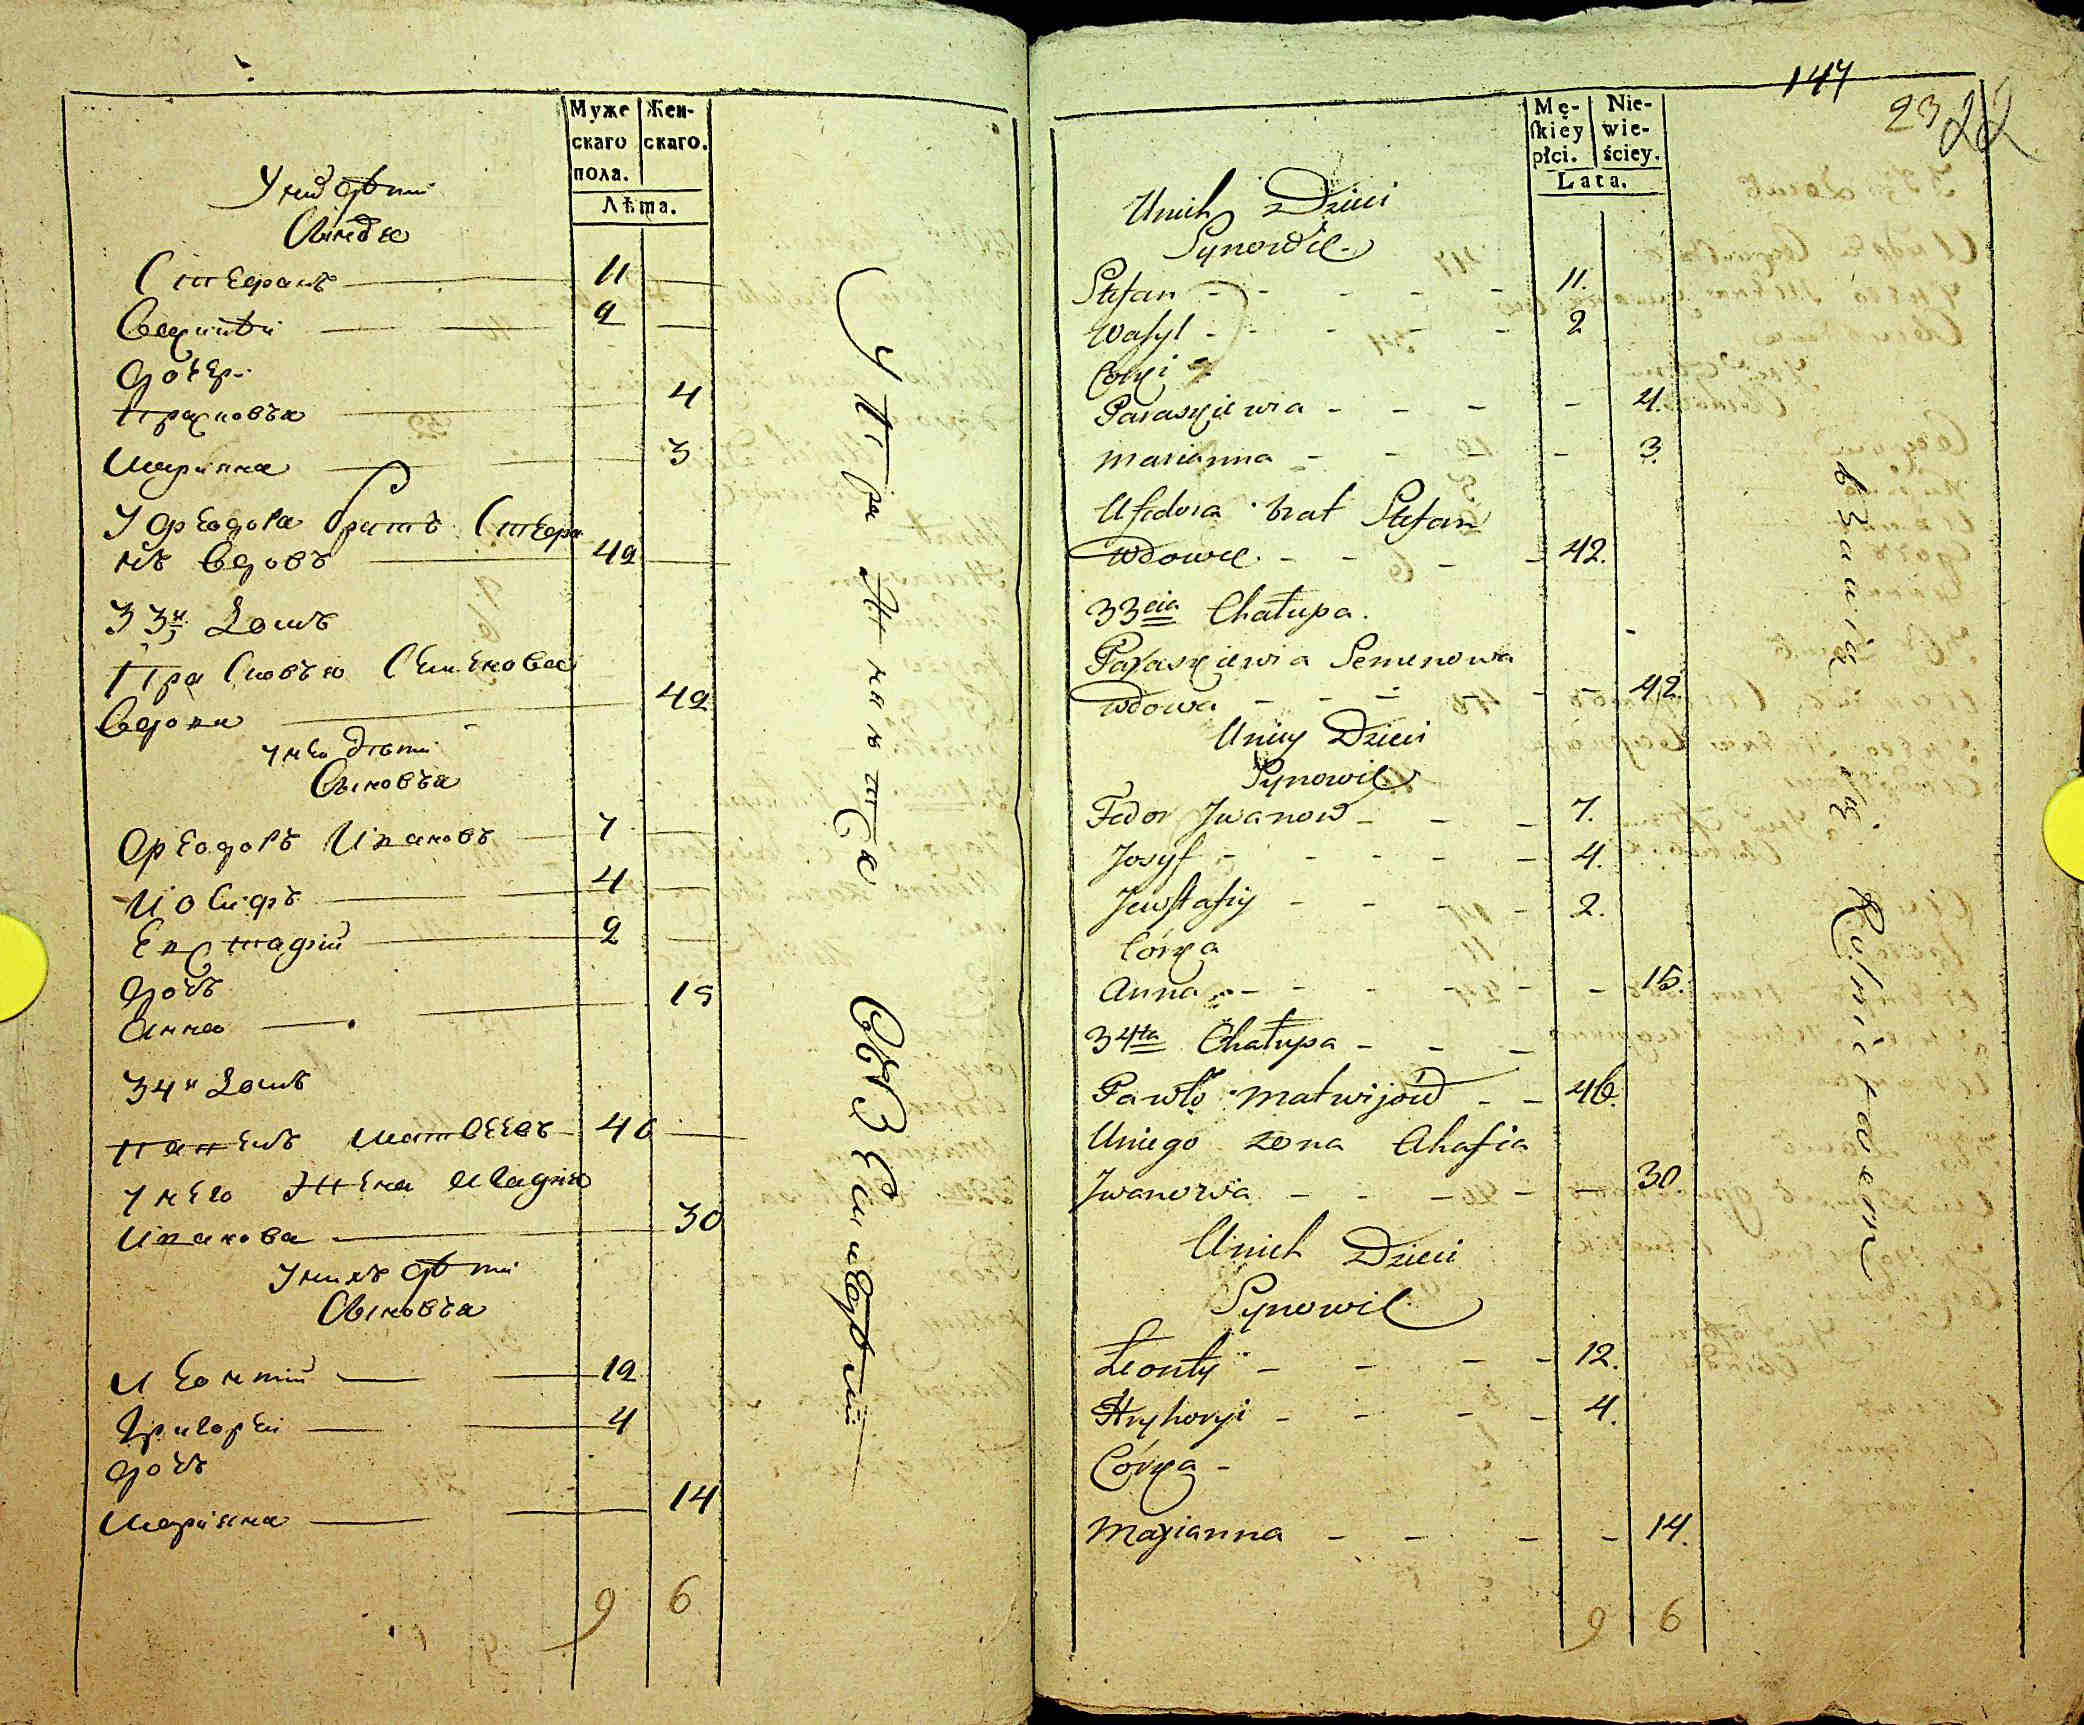 Муже
скаго
пола.
Жен-
скаго.
Лѣта.
У них дѣти
Сыновья
Стефанъ 11
Василий 2
Дочери
Прасковья 4
Марианна 3
У Феодора братъ Стефа
нъ вдовъ 42
33й Домъ
Прасковья Семенова
вдова 42
У нее дѣти
Сыновья
Феодоръ Ивановъ 7
Иосифъ 4
Евстафій 2
Дочь
Анна 15
34й Домъ
Павелъ Матвеевъ 46
У него жена Агафия
Иванова 30
У нихъ дѣти
Сыновья
Леонтий 12
Григорей 4
Дочь
Марианна 14
9 6
Упражняются
Земледѣлии
147
23 22
Mę-
skiéy
płci.
Nie-
wie-
ściey.
Lata.
Unich Dzieci
Synowie
Stefan 11.
Wasyl 2
Corki
Paraskiewia 4.
Marianna 3.
U Fedora brat Stefan
Wdowec 42.
33cia Chałupa.
Paraskiewia Semenowa
Wdowa 42.
Uniey Dzieci
Synowie
Fedor Jwanow 7.
Josyf 4.
Jewstafiy 2.
Córka
Anna 15.
34ta Chałupa
Pawło Matwijow 46.
Uniego zona Ahafia
Jwanowa 30
Unich Dzieci
Synowie
Leonty 12.
Hryhoryi 4.
Córka
Maryanna 14.
9 6
bawią się Rolnictwem